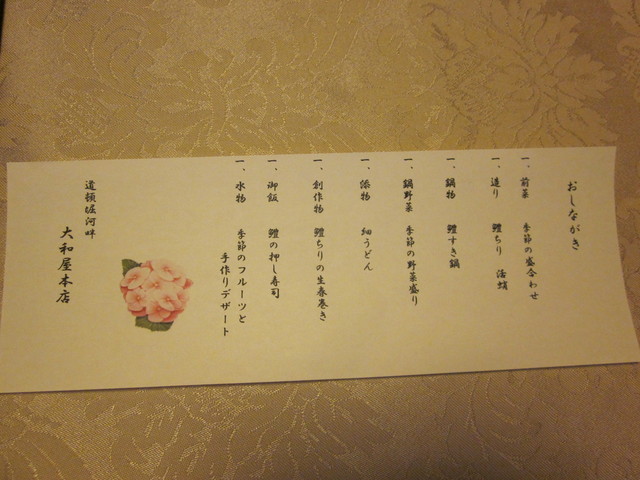 おしながき
一、前菜 季節の盛合わせ
一、造り 鱧ちり 活蛸
一、鍋物 鱧すき鍋
一、鍋野菜 季節の野菜盛り
一、添物 細うどん
一、創作物 鱧ちりの生春巻き
一、御飯 鱧の押し寿司
一、水物 季節のフルーツと
手作りデザート
道頓堀河畔
大和屋本店